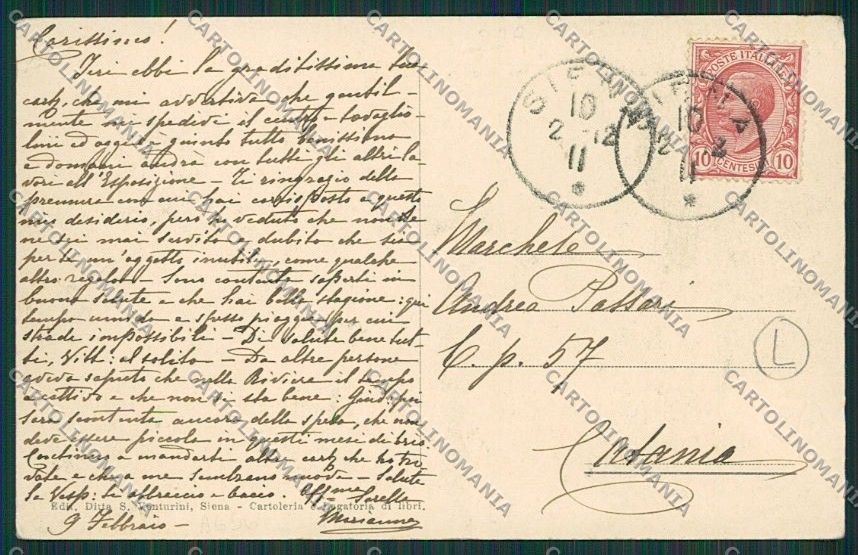 Carissimo!
Ieri ebbi la graditissima tua
cart, che mi avvertiva che gentil-
mente mi spedivi il centro - tovaglio-
lini ed oggi è giunto tutto benissimo
e domani andrà con tutti gli altri la-
vori all'Esposizione - Ti ringrazio delle
premure con cui hai corrisposto a questo
mio desiderio, però ho veduto che non te
ne sei mai servito e dubito che sia
per te un'oggetto inutile, come qualche
altro regalo - Sono contenta saperti in
buona salute e che hai bella stagione: qui
tempo umido e spesso pioggia per cui
strade impossibili - Di salute bene tut-
ti, Vitt: al solito - Da altre persone
aveva saputo che nella Riviera il tempo
cattivo e che non si sta bene: Gius: poi
sarà scontenta ancora della spesa, che non
deve essere piccola in questi mesi di brio
Continua a mandarti altre cart, che
e che a me sembrano - Salute
la Vesp: ti abbraccio e bacio. Aff=ma Sorella
Marianna
9 Febbraio -
Edit. Ditta S. Venturini, Siena - Cartoleria e Legatoria di libri.
SIENA
10
2 - 12
11
*
SIENA
10
2
11
*
POSTE ITALIANE
10 CENTESIMI 10
Marchese
Andrea Passari
C. p. 57
Catania
L
CARTOLINOMANIA